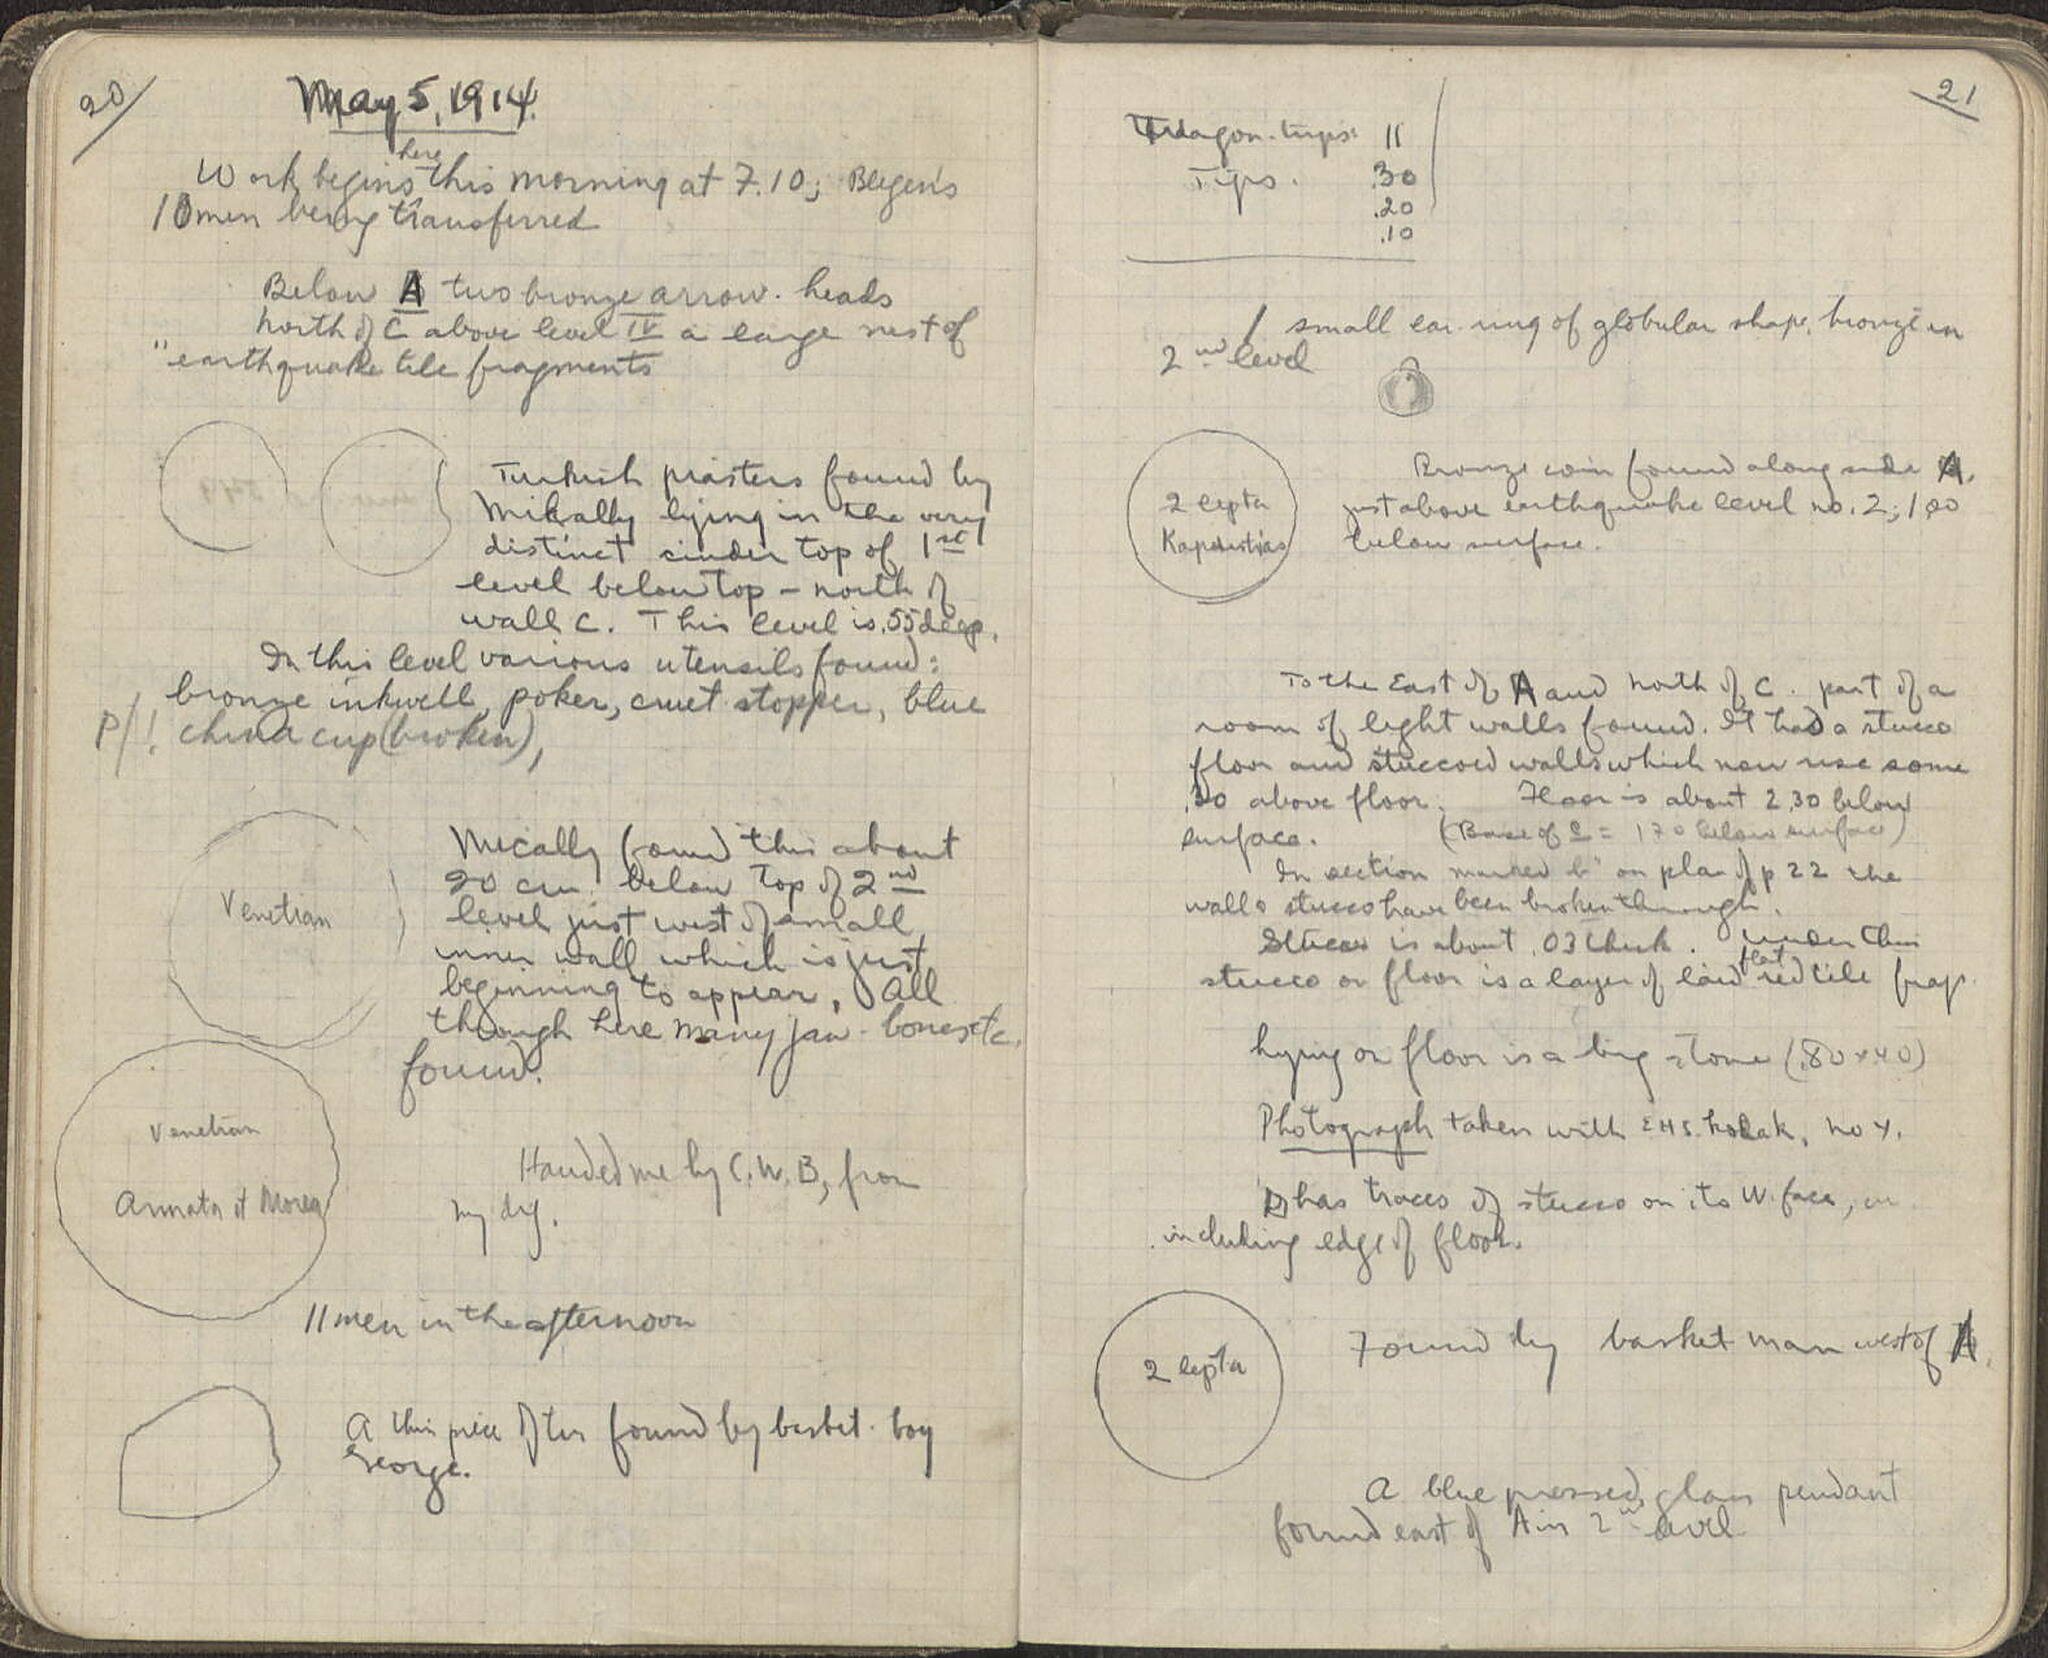 20
May 5, 1914.
here
Work begins this morning at 7.10; Blegen's
10 men being transferred
Below A two bronze arrow-heads
North of C above level IV a large nest of
"earthquake tile fragments
Turkish piasters found by
Mikally lying in the very
distinct cinder top of 1st
level below top - north of
wall C. This level is .55 deep.
In this level various utensils found:
bronze inkwell, poker, cruet stopper, blue
P/! china cup (broken),
Venetian
Mically found this about
20 cm. below top of 2nd
level just west of small
inner wall which is just
beginning to appear. All
through here many jaw-bones etc.
found.
Venetian
Armata et Morea
Handed me by C.W.B, from
my dig.
11 men in the afternoon
A thin piece of tin found by basket-boy
George.
21
wagon-trips: 11
Tips. .30
.20
.10
1 small ear-ring of globular shape, bronze in
2nd level
2 lepta
Kapodistrias
Bronze coin found along side A.
just above earthquake level no. 2; 1.00
below surface.
To the East of A and North of C. part of a
room of light walls found. It had a stucco
floor and stuccoed walls which now rise some
.30 above floor. Floor is about 2.30 below
surface. (Base of C = 1.70 below surface)
In section marked "b" on plan of p 22 the
walls stucco have been broken through.
Stucco is about .03 thick. Under this
flat
stucco or floor is a layer of laid red tile frag.
Lying on floor is a big stone (.80 x 40)
Photograph taken with EHS. kodak, no 4.
D has traces of stucco on its W. face,
including edge of floor.
2 lepta
Found by basket man west of A.
A blue pressed glass pendant
found east of A in 2nd level